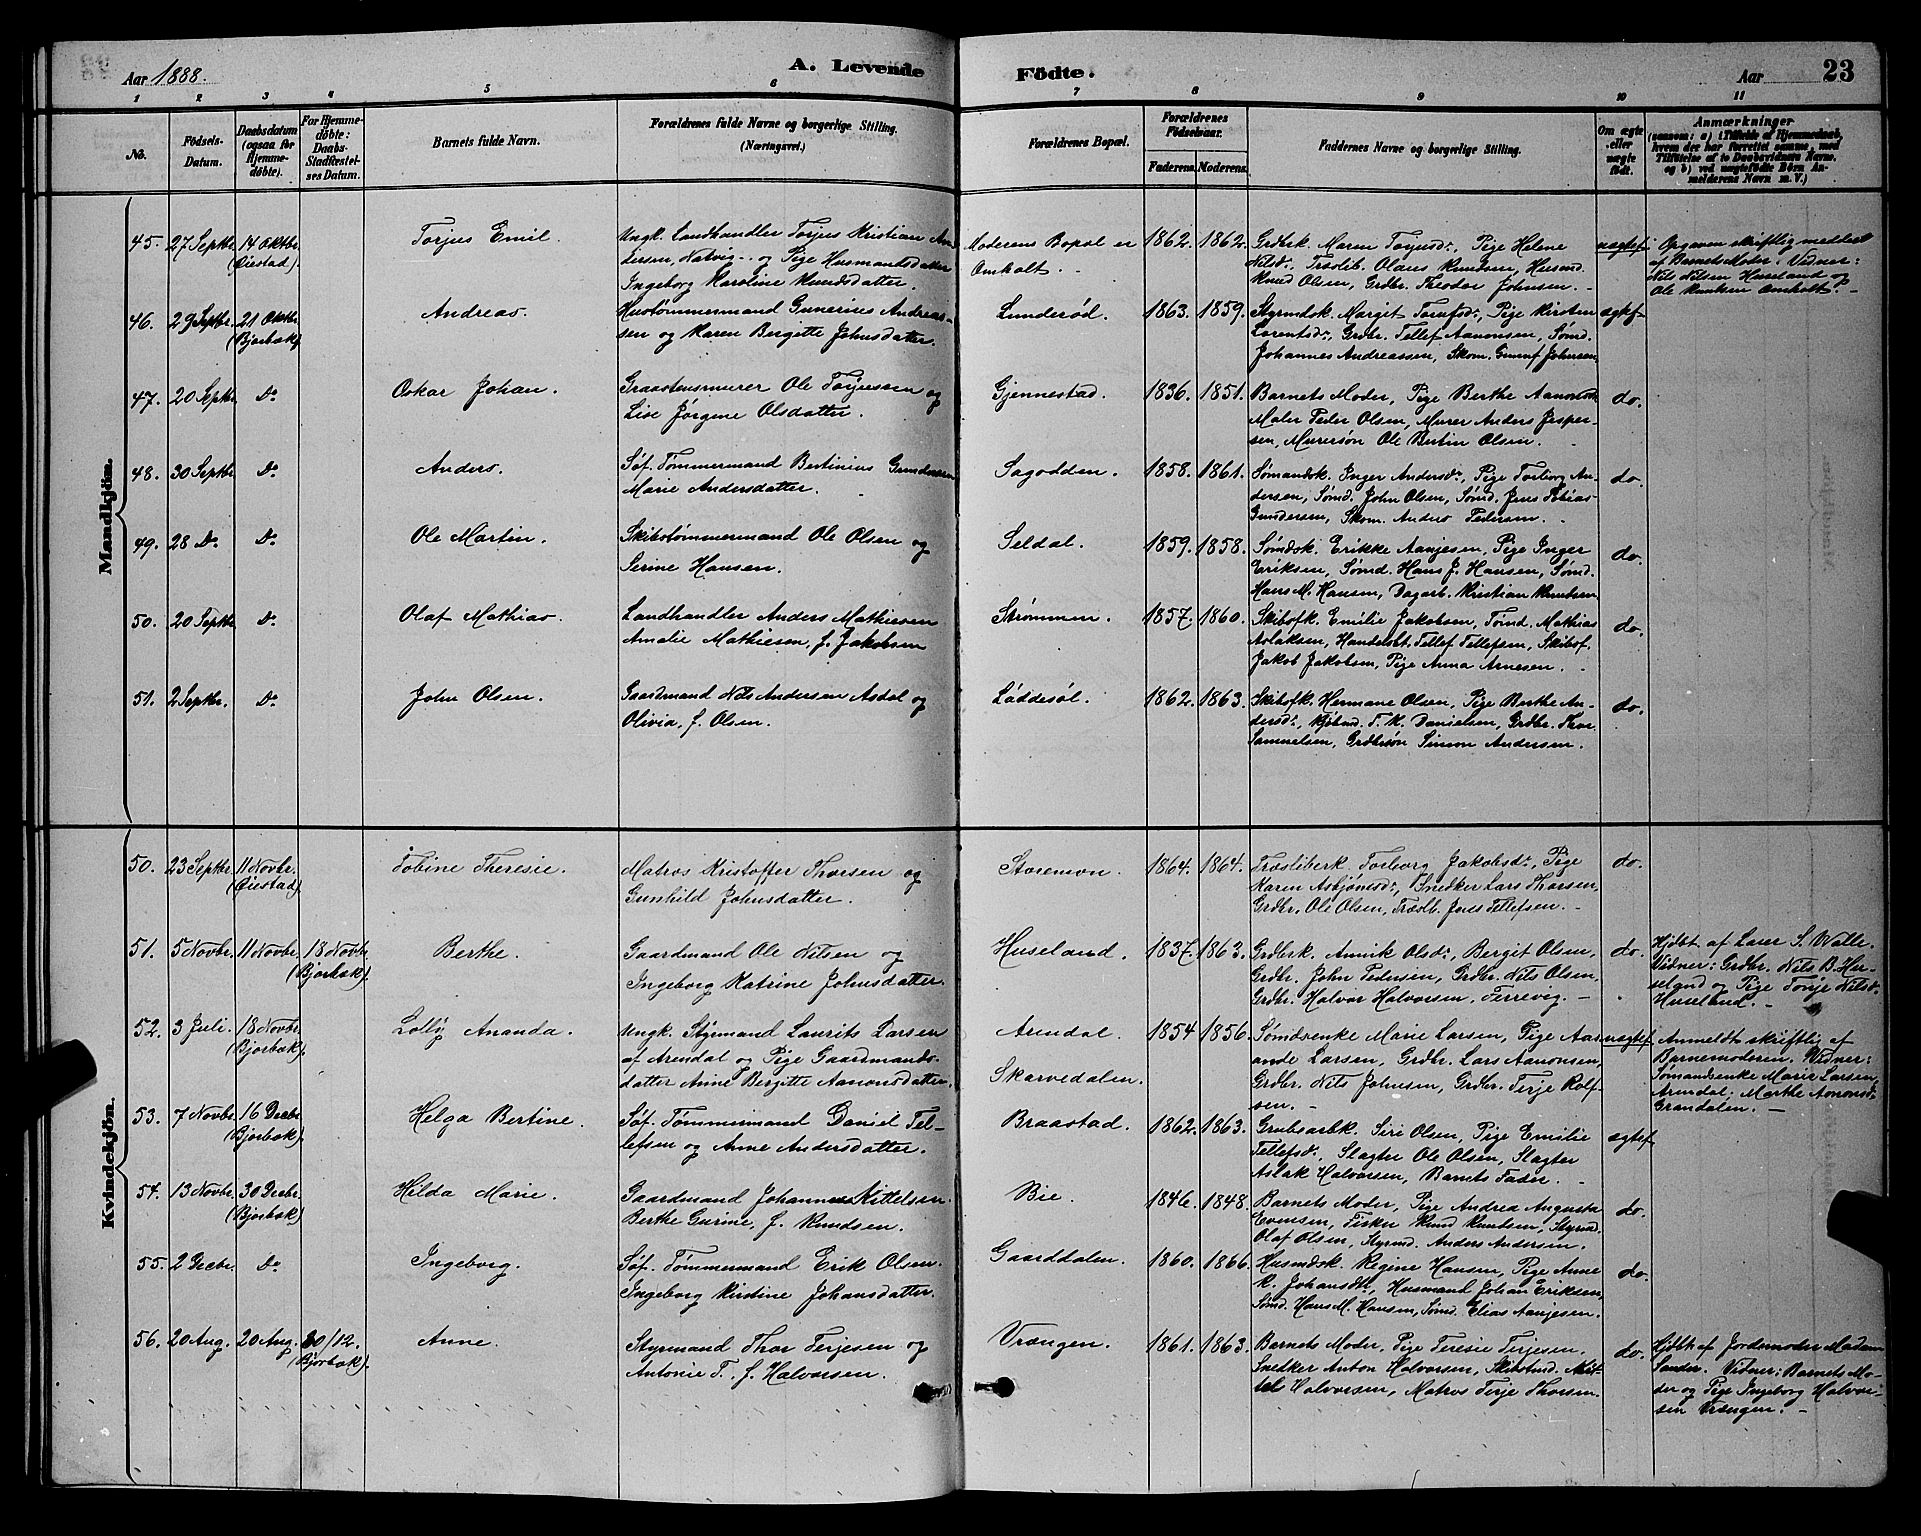 Aar 1888.
A. Levende Fødte.
Aar 23
1 2 3 4 5 6 7 8 9 10 11
No.
Fødsels-Datum.
Daabsdatum (ogsaa for Hjemmedøbte).
For Hjemmedøbte: Daabs-Stadfæstelses Datum.
Barnets fulde Navn.
Forældrenes fulde Navne og borgerlige Stilling.
(Næringsvei.)
Forældrenes Bopæl.
Forældrenes Fødselsaar.
Faderens. Moderens.
Faddernes Navne og borgerlige Stilling.
Om ægte eller uægte født.
Anmærkninger
(saasom: a) i Tilfælde af Hjemmedaab, hvem der har forrettet samme, med Tilføielse af to Daabsvidners Navne, og b) ved uægtefødte Børn Anmelderens Navn m. V.)
Mandkjön.
45. 27 Septbr. 14 Oktbr. (Øiestad). Torjus Emil.
Ungk. Landhandler Torjus Kristian An-
dersen, Natvig - og Pige Husmantsdatter
Ingeborg Karoline Knudsdatter.
Moderens Bopæl er
Omholt. -
1862. 1862.
Grdbrk. Maren Torjusdr, Pige Helene
Nilsdr, Træslib. Olaus Knudsen, Husmd.
Knud Olsen, Grdbr. Theodor Johnsen. -
uægtef.
Opgaven skriftlig meddelt
af Barnets Moder. Vidner:
Nils Nilsen Huseland og
Ole Knutsen Omholt. -
46. 29 Septbr. 21 Oktbr. (Bjorbæk). Andreas.
Hustømmermand Gunerius Andreas-
sen og Karen Bergitte Johnsdatter.
Lunderød.
1863. 1859.
Styrmdsk. Margit Torufsdr, Pige Kirsten
Larentsdr, Grdbr. Tellef Aanonsen, Sømd.
Johannes Andreassen, Skom. Gunuf Johnsen.
ægtef
47. 20 Septbr. Do Oskar Johan.
Graastensmurer Ole Torjussen og
Lise Jørgine Olsdatter.
Gjennestad.
1836. 1851.
Barnets Moder, Pige Berthe Aanonsdr
Maler Peder Olsen, Murer Anders Jesper-
sen, Murersøn Ole Bertin Olsen.
do.
48. 30 Septbr. Do Anders.
Søf. Tømmermand Bertinius Gundersen
Marie Andersdatter.
Sagodden.
1858. 1861.
Sømandsk. Inger Andersdr, Pige Torborg An-
dersen, Sømd. John Olsen, Sømd. Jens Tobias
Gundersen, Skom. Anders Pedersen.
do.
49. 28 Do. Do Ole Martin.
Skibstømmermand Ole Olsen og
Serine Hansen.
Seldal.
1859. 1858.
Sømdsk. Erikke Aanjesen, Pige Inger
Eriksen, Sømd. Hans J. Hansen, Sømd.
Hans M. Hansen, Dagarb. Kristian Knudsen
do.
50. 20 Septbr. Do Olaf Mathias.
Landhandler Anders Mathiesen
Amalie Mathiesen, f. Jakobsen
Strømmen.
1857. 1860.
Skibsfk. Emilie Jakobsen, Tømd. Mathias
Aslaksen, Handelsbt. Tellef Tellefsen, Skibsf.
Jakob Jakobsen, Pige Anna Arnesen.
do.
51. 2 Septbr. Do John Olsen.
Gaardmand Nils Andersen Asdal og
Olivia, f. Olsen.
Løddesøl.
1862. 1863.
Skibsfk. Hermane Olsen, Pige Berthe An-
dersdr, Kjøbmd. T. K. Danielsen, Grdbr. Thor
Samuelsen, Grdbrsøn Simon Andersen.
do.
Kvindekjön.
50. 23 Septbr. 11 Novbr. (Øiestad) Tobine Theresie.
Matros Kristoffer Thorsen og
Gunhild Johnsdatter.
Storemon.
1864. 1864.
Træsliberk. Torborg Jakobsdr, Pige
Karen Asbjørnsdr, Snedker Lars Thorsen,
Grdbr. Ole Olsen, Træslb. Jens Tellefsen. -
do.
51. 5 Novbr. 11 Novbr. 18 Novbr. (Bjorbæk). Berthe.
Gaardmand Ole Nilsen og
Ingeborg Katrine Johnsdatter.
Huseland.
1837. 1863.
Grdbrk. Annik Olsdr, Bergit Olsen,
Grdbr. John Pedersen, Grdbr. Nils Olsen,
Grdbr. Halvor Halvorsen, Ferrevig. -
do.
Hjdbt af Lærer S. Walle.
Vidner: Grdbr. Nils B. Hu-
seland og Pige Tonje Nilsdr
Huseland. -
52. 3 Juli. 18 Novbr. (Bjorbæk). Lolly Ananda.
Ungk. Styrmand Laurits Larsen
af Arendal og Pige Gaardmands-
datter Anne Bergitte Aanonsdatter.
Arendal.
Skarvedalen.
1854 1856.
Sømdsenke Marie Larsen, Pige Aas-
ande Larsen, Grdbr. Lars Aanonsen,
Grdbr. Nils Johnsen, Grdbr. Terje Rolf-
sen. -
uægtef.
Anmeldt skriftlig af
Barnemoderen. Vidner:
Sømandsenke Marie Larsen,
Arendal; Marthe Aanonsdr
Grandalen. -
53. 7 Novbr. 16 Decbr. (Bjorbæk). Helga Bertine.
Søf. Tømmermand Daniel Tel-
lefsen og Anne Andersdatter.
Braastad.
1862. 1863.
Grubearbk. Siri Olsen, Pige Emilie
Tellefsdr, Slagter Ole Olsen, Slagter
Aslak Halvorsen, Barnets Fader. -
ægtef
54. 13 Novbr. 30 Decbr. (Bjorbæk) Hilda Marie.
Gaardmand Johannes Kittelsen
Berthe Gurine, f. Knudsen.
Bie.
1846. 1848.
Barnets Moder, Pige Andrea Augusta
Evensen, Fisker Knud Knudsen, Styrmd.
Olaf Olsen, Styrmd. Anders Andersen.
do.
55. 2 Decbr. Do Ingeborg.
Søf. Tømmermand Erik Olsen.
Ingeborg Kirstine Johansdatter.
Gaarddalen.
1860. 1866.
Husmdsk. Regine Hansen, Pige Anne
K. Johansdt, Husmand Johan Eriksen,
Sømd. Hans M. Hansen, Sømd. Elias Aanjesen.
do.
56. 20 Aug. 20 Aug. 30/12. (Bjorbæk). Anne.
Styrmand Thor Terjesen og
Antonie T. f. Halvorsen.
Vrængen.
1861. 1863.
Barnets Moder, Pige Teresie Terjesen,
Snedker Anton Halvorsen, Skibstmd. Kit-
tel Halvorsen, Matros Terje Thorsen.
do.
Hjdbt af Jordemoder Madam
Sander. Vidner: Barnets Mo-
der og Pige Ingeborg Halvor-
sen Vrængen. -